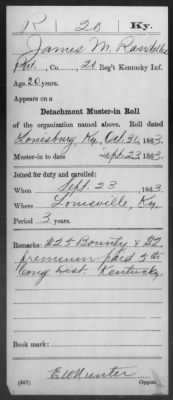 R 20 Ky.
James M.
Pvt., Co. , 21 Reg't Kentucky Inf.
Age 20 years.
Appears on a
Detachment Muster-in Roll
of the organization named above. Roll dated
Louisburg, Ky., Oct. 31, 1863.
Muster-in to date Sept. 23, 1863.
Joined for duty and enrolled:
When Sept. 23, 1863.
Where Louisville, Ky.
Period 3 years.
Remarks: $25 Bounty & $2
premium paid 5th
Cong Dist. Kentucky.
Book mark:
EW Hunter
(357) Copyist.